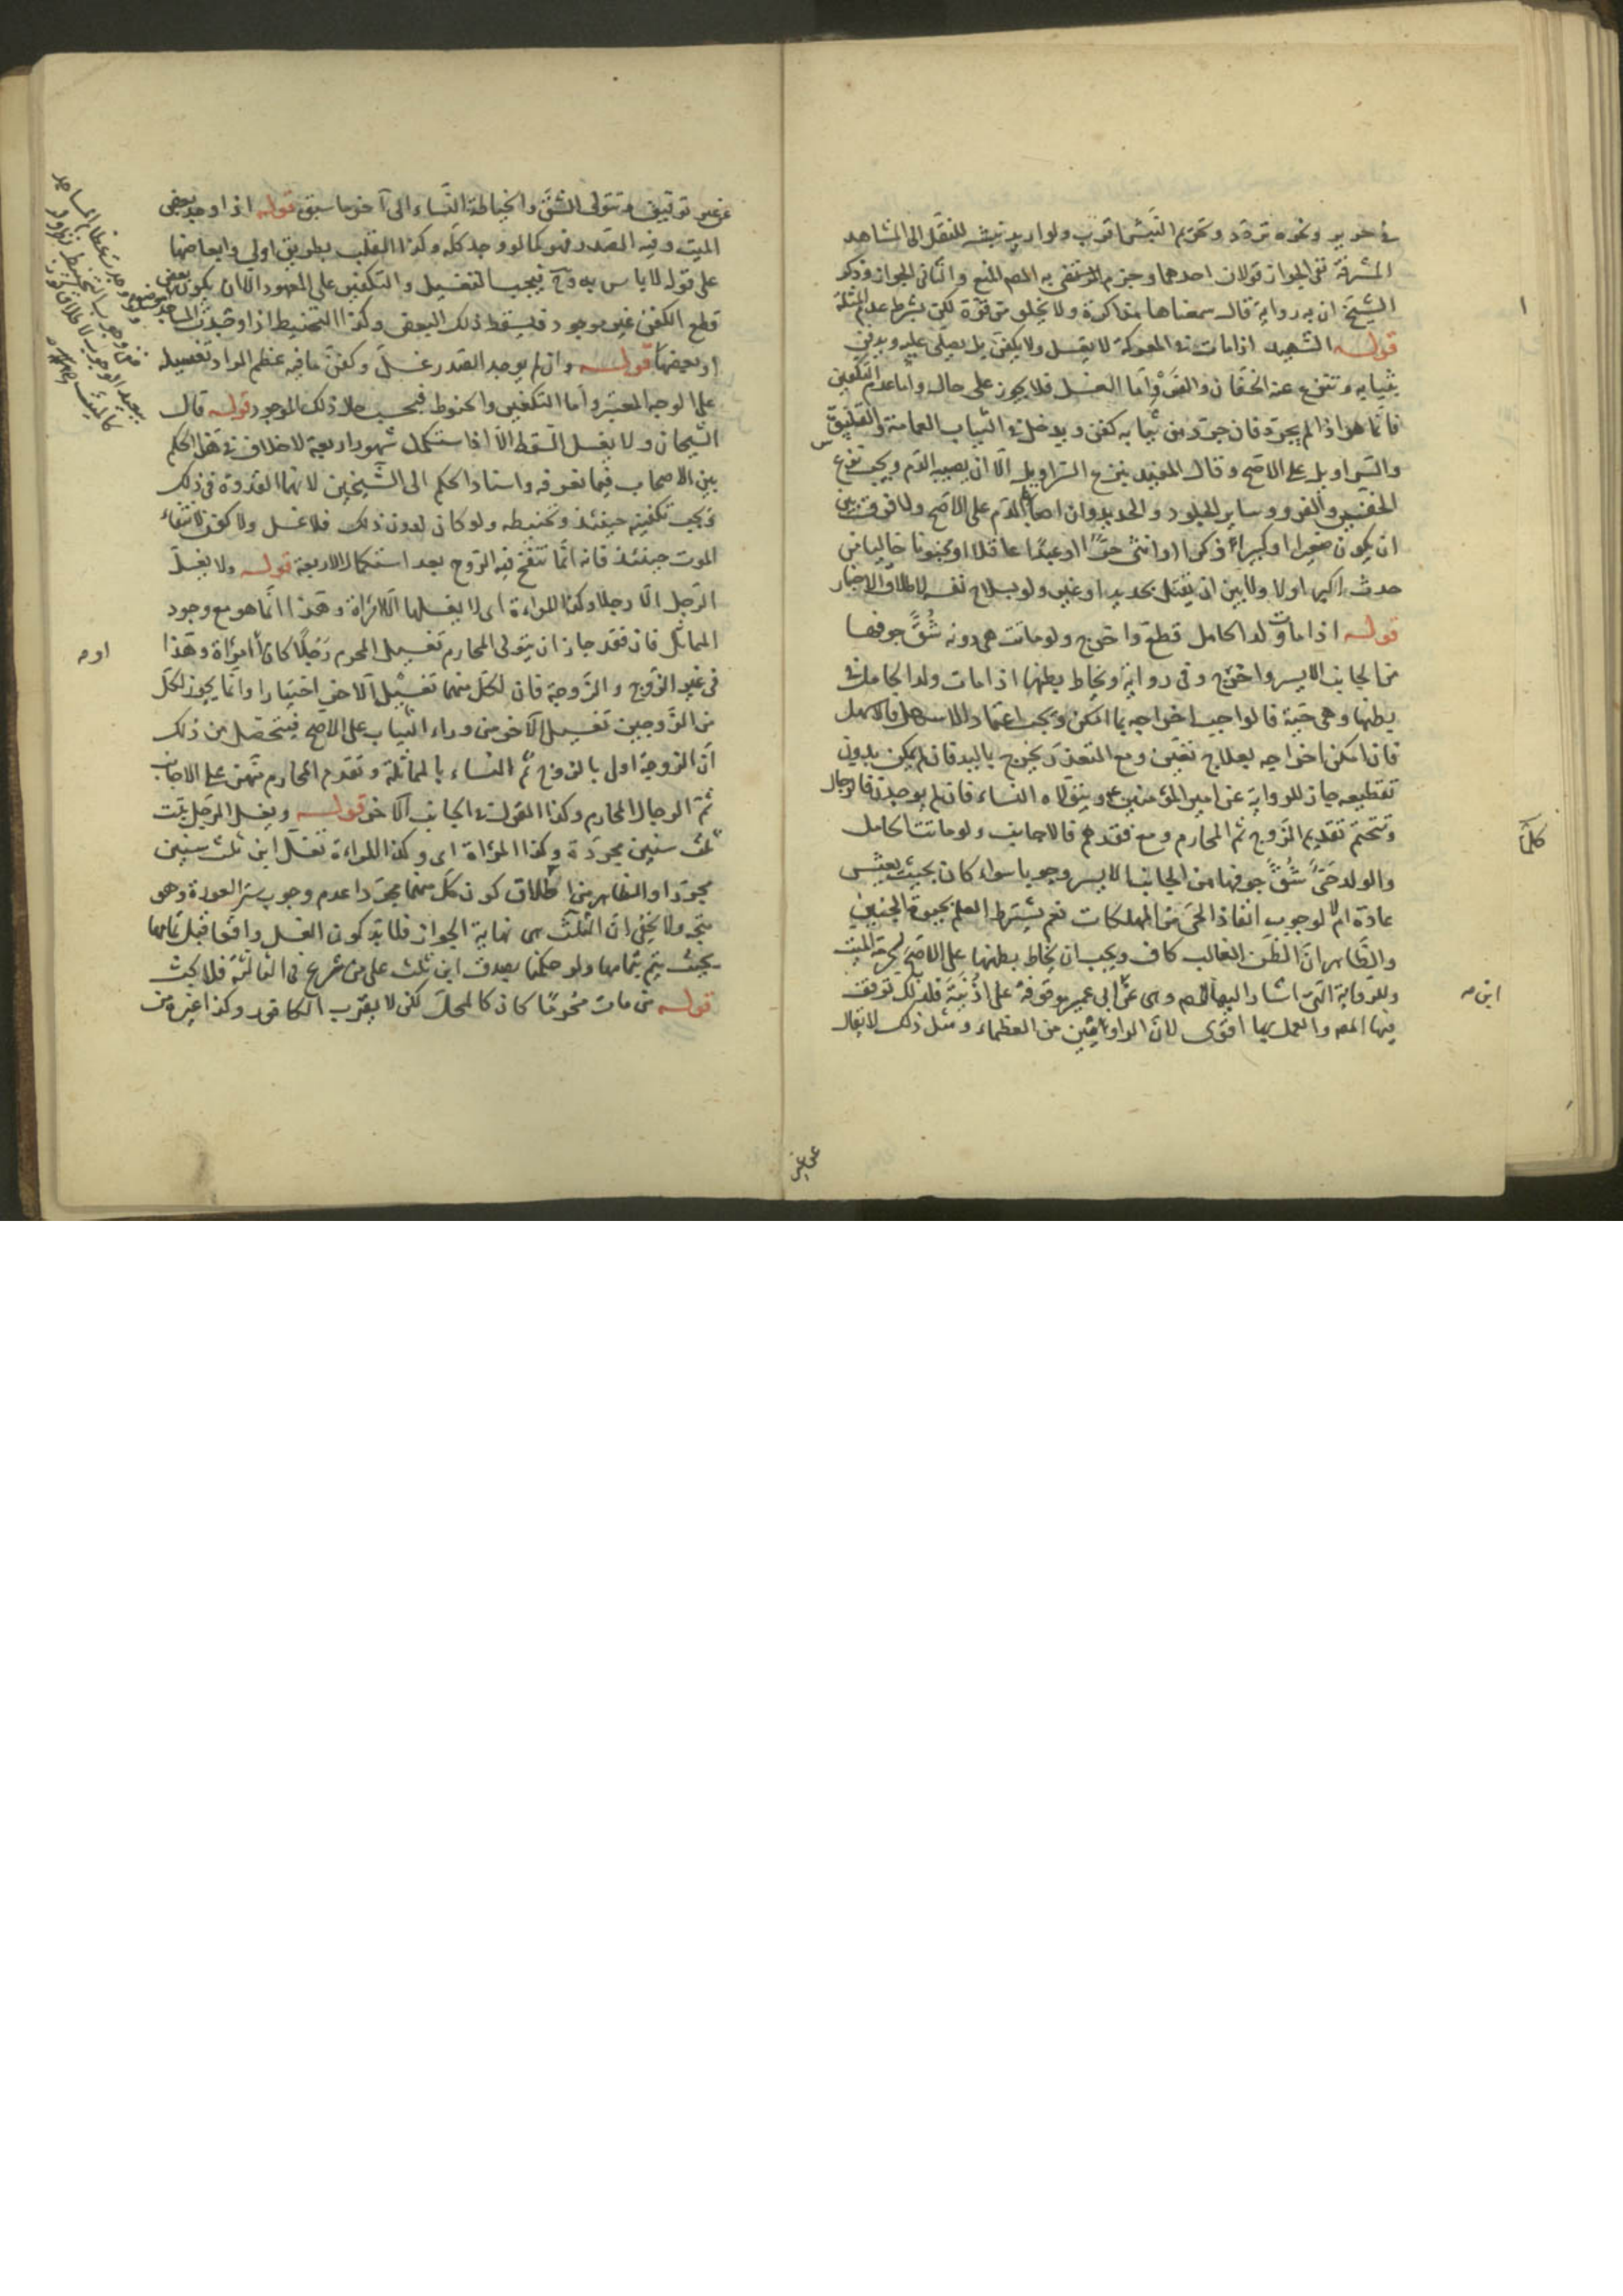 في حرير ونحوه تردد وتحريم النبش اقرب ولو اريد نبشه للنقل الى المشاهد
المشرفة ففي الجواز قولان احدهما وجزم به المص المنع والثاني الجواز وذكر
الشيخ ان به رواية قال سمعناها مذاكرة ولا يخلو من قوة لكن بشرط عدم المثلة
قوله الشهيد اذا مات في المعركة لا يغسل ولا يكفن بل يصلى عليه ويدفن
بثيابه وتنزع عنه الخفان والفرو واما الغسل فلا يجوز على حال واما عدم التكفين
فانما هو اذا لم يجرد فان جرد من ثيابه كفن ويدخل في الثياب العمامة والقلنسوة
والسراويل على الاصح وقال المفيد ينزع السراويل الا ان يصيبه الدم ويجب نزع
الخفين والفرو وساير الجلود والحديد وان اصابها الدم على الاصح ولا فرق بين
ان يكون صغيرا او كبيرا ذكرا او انثى حرا او عبدا عاقلا او مجنونا خاليا من
حدث اكبر اولا ولا بين ان يقتل بحديد او غيره ولو بسلاح نفسه لاطلاق الاخبار
قوله اذا مات ولد الحامل قطع واخرج ولو ماتت هي دونه شق جوفها
من الجانب الايسر واخرج وفي رواية ويخاط بطنها اذا مات ولد الحامل في
بطنها وهي حية فالواجب اخراجه بما امكن ويجب اعتماد الاسهل فالاسهل
فان امكن اخراجه بعلاج تعين ومع التعذر يخرج باليد فان لم يمكن بدون
تقطيعه جاز للرواية عن امير المؤمنين ع ويتولاه النساء فان لم يوجدن فالرجال
ويتحتم تقديم الزوج ثم المحارم ومع فقدهم فالاجانب ولو ماتت الحامل
والولد حي شق جوفها من الجانب الايسر وجوبا سواء كان بحيث يعيش
عادة ام لا لوجوب انقاذ الحي من المهلكات نعم يشترط العلم بحيوة الجنين
والظاهر ان الظن الغالب كاف ويجب ان يخاط بطنها على الاصح لحرمة الميت
وللرواية التي اشار اليها المص وهي عن ابن ابي عمير موقوفة على اذينة فلذلك توقف
فيها المص والعمل بها اقوى لان الراويين من العظماء ومثل ذلك لا يقال
كلما
ابن صه
عن غير
عن غير توقيف وتتولى الشق والخياطة النساء الى آخر ما سبق قوله اذا وجد بعض
الميت وفيه الصدر فهو كما لو وجد كله وكذا القلب بطريق اولى وابعاضها
على قول لا باس به وح فيجب التغسيل والتكفين على المعهود الا ان يكون بعض موضع
قطع الكفن غير موجود فيسقط ذلك البعض وكذا التحنيط اذا وجدت المساجد
او بعضها قوله وان لم يوجد الصدر غسل وكفن ما فيه عظم المراد تغسيله
على الوجه المعتبر واما التكفين والحنوط فبحسب حال ذلك الموجود قوله قال
الشيخان ولا يغسل السقط الا اذا استكمل شهورا اربعة لا خلاف في هذا الحكم
بين الاصحاب فيما نعرفه واسناد الحكم الى الشيخين لانهما القدوة في ذلك
ويجب تكفينه حينئذ وتحنيطه ولو كان لدون ذلك فلا غسل ولا كفن لانتفاء
الموت حينئذ فانه انما تنفخ فيه الروح بعد استكمال الاربعة قوله ولا يغسل
الرجل الا رجلا وكذا المراءة اى لا يغسلها الا امراة وهذا انما هو مع وجود
المماثل فان فقد جاز ان يتولى المحارم تغسيل المحرم رجلا كان أامراة وهذا
في غير الزوج والزوجة فان لكل منهما تغسيل الآخر اختيارا وانما يجوز لكل
من الزوجين تغسيل الآخر من وراء الثياب على الاصح فيتحصل من ذلك
ان الزوجة اولى بالزوج ثم النساء بالمماثلة وتقدم المحارم منهن على الاجانب
ثم الرجال المحارم وكذا القول في الجانب الآخر قوله ويغسل الرجل بنت
ثلث سنين مجردة وكذا المراة اى وكذا المراءة تغسل ابن ثلث سنين
مجردا والظاهر من اطلاق كون كل منهما مجردا عدم وجوب ستر العورة وهو
متجه ولا يخفى ان الثلث هى نهاية الجواز فلا بد كون الغسل واقعا قبل تمامها
بحيث يتم بتمامها ولو حكمنا بصدق ابن ثلث على من شرع في الثالثة فلا بحث
قوله من مات محرما كان كالمحل لكن لا يقرب الكافور وكذا غيره من
او صه